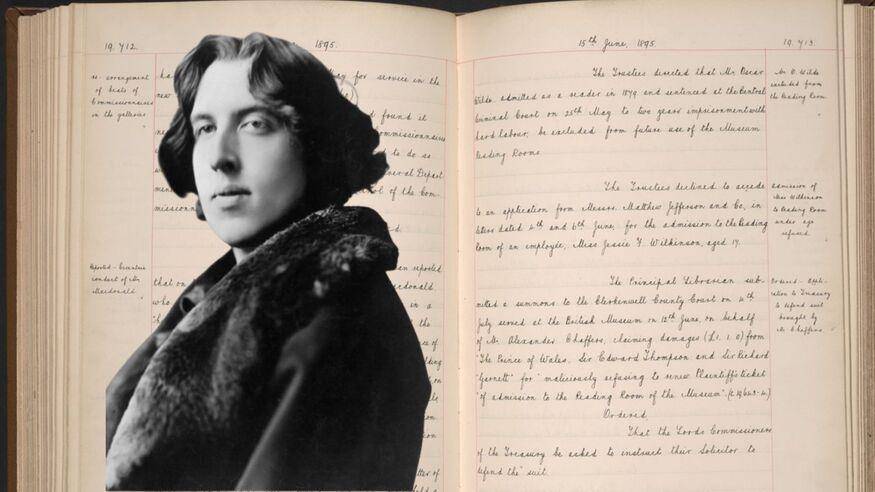 19,712.
1895.
re-arrangement
of beats of
Commissionaires
in the galleries
ha
for service in the
new
found it
ommissionaires
to do so
w
eral Depart
men
l of the Com-
missionn
d.
Reported - 
conduct of Mr
Macdonald.
an reported
that on
cdonald.
who
in a
"h
the
ce of
tter of
15th June, 1895.
19,713.
The Trustees directed that Mr Oscar
Wilde, admitted as a reader in 1879 and sentenced at the Central
Criminal Court on 25th May to two years imprisonment with
hard labour, be excluded from future use of the Museum
Reading Rooms.
Mr O. Wilde
excluded from
the Reading Room
The Trustees declined to accede
to an application from Messrs. Matthew Jefferson and Co, in
letters dated 4th and 6th June, for the admission to the Reading
Room of an employée, Miss Jessie F. Wilkinson, aged 17.
Admission of
Miss Wilkinson
to Reading Room
under age
refused.
The Principal Librarian sub-
mitted a summons to the Clerkenwell County Court on 4th
July served at the British Museum on 12th June, on behalf
of Mr. Alexander Chaffers, claiming damages (£1. 1. 0) from
"The Prince of Wales, Sir Edward Thompson and Sir Richard
"Garnett" for "maliciously refusing to renew Plaintiff's ticket
"of admission to the Reading Room of the Museum".
Ordered - Appli-
cation to Treasury
to defend suit
brought by
Mr Chaffers
Ordered,
That the Lords Commissioners
of the Treasury be asked to instruct their Solicitor to
defend the suit.